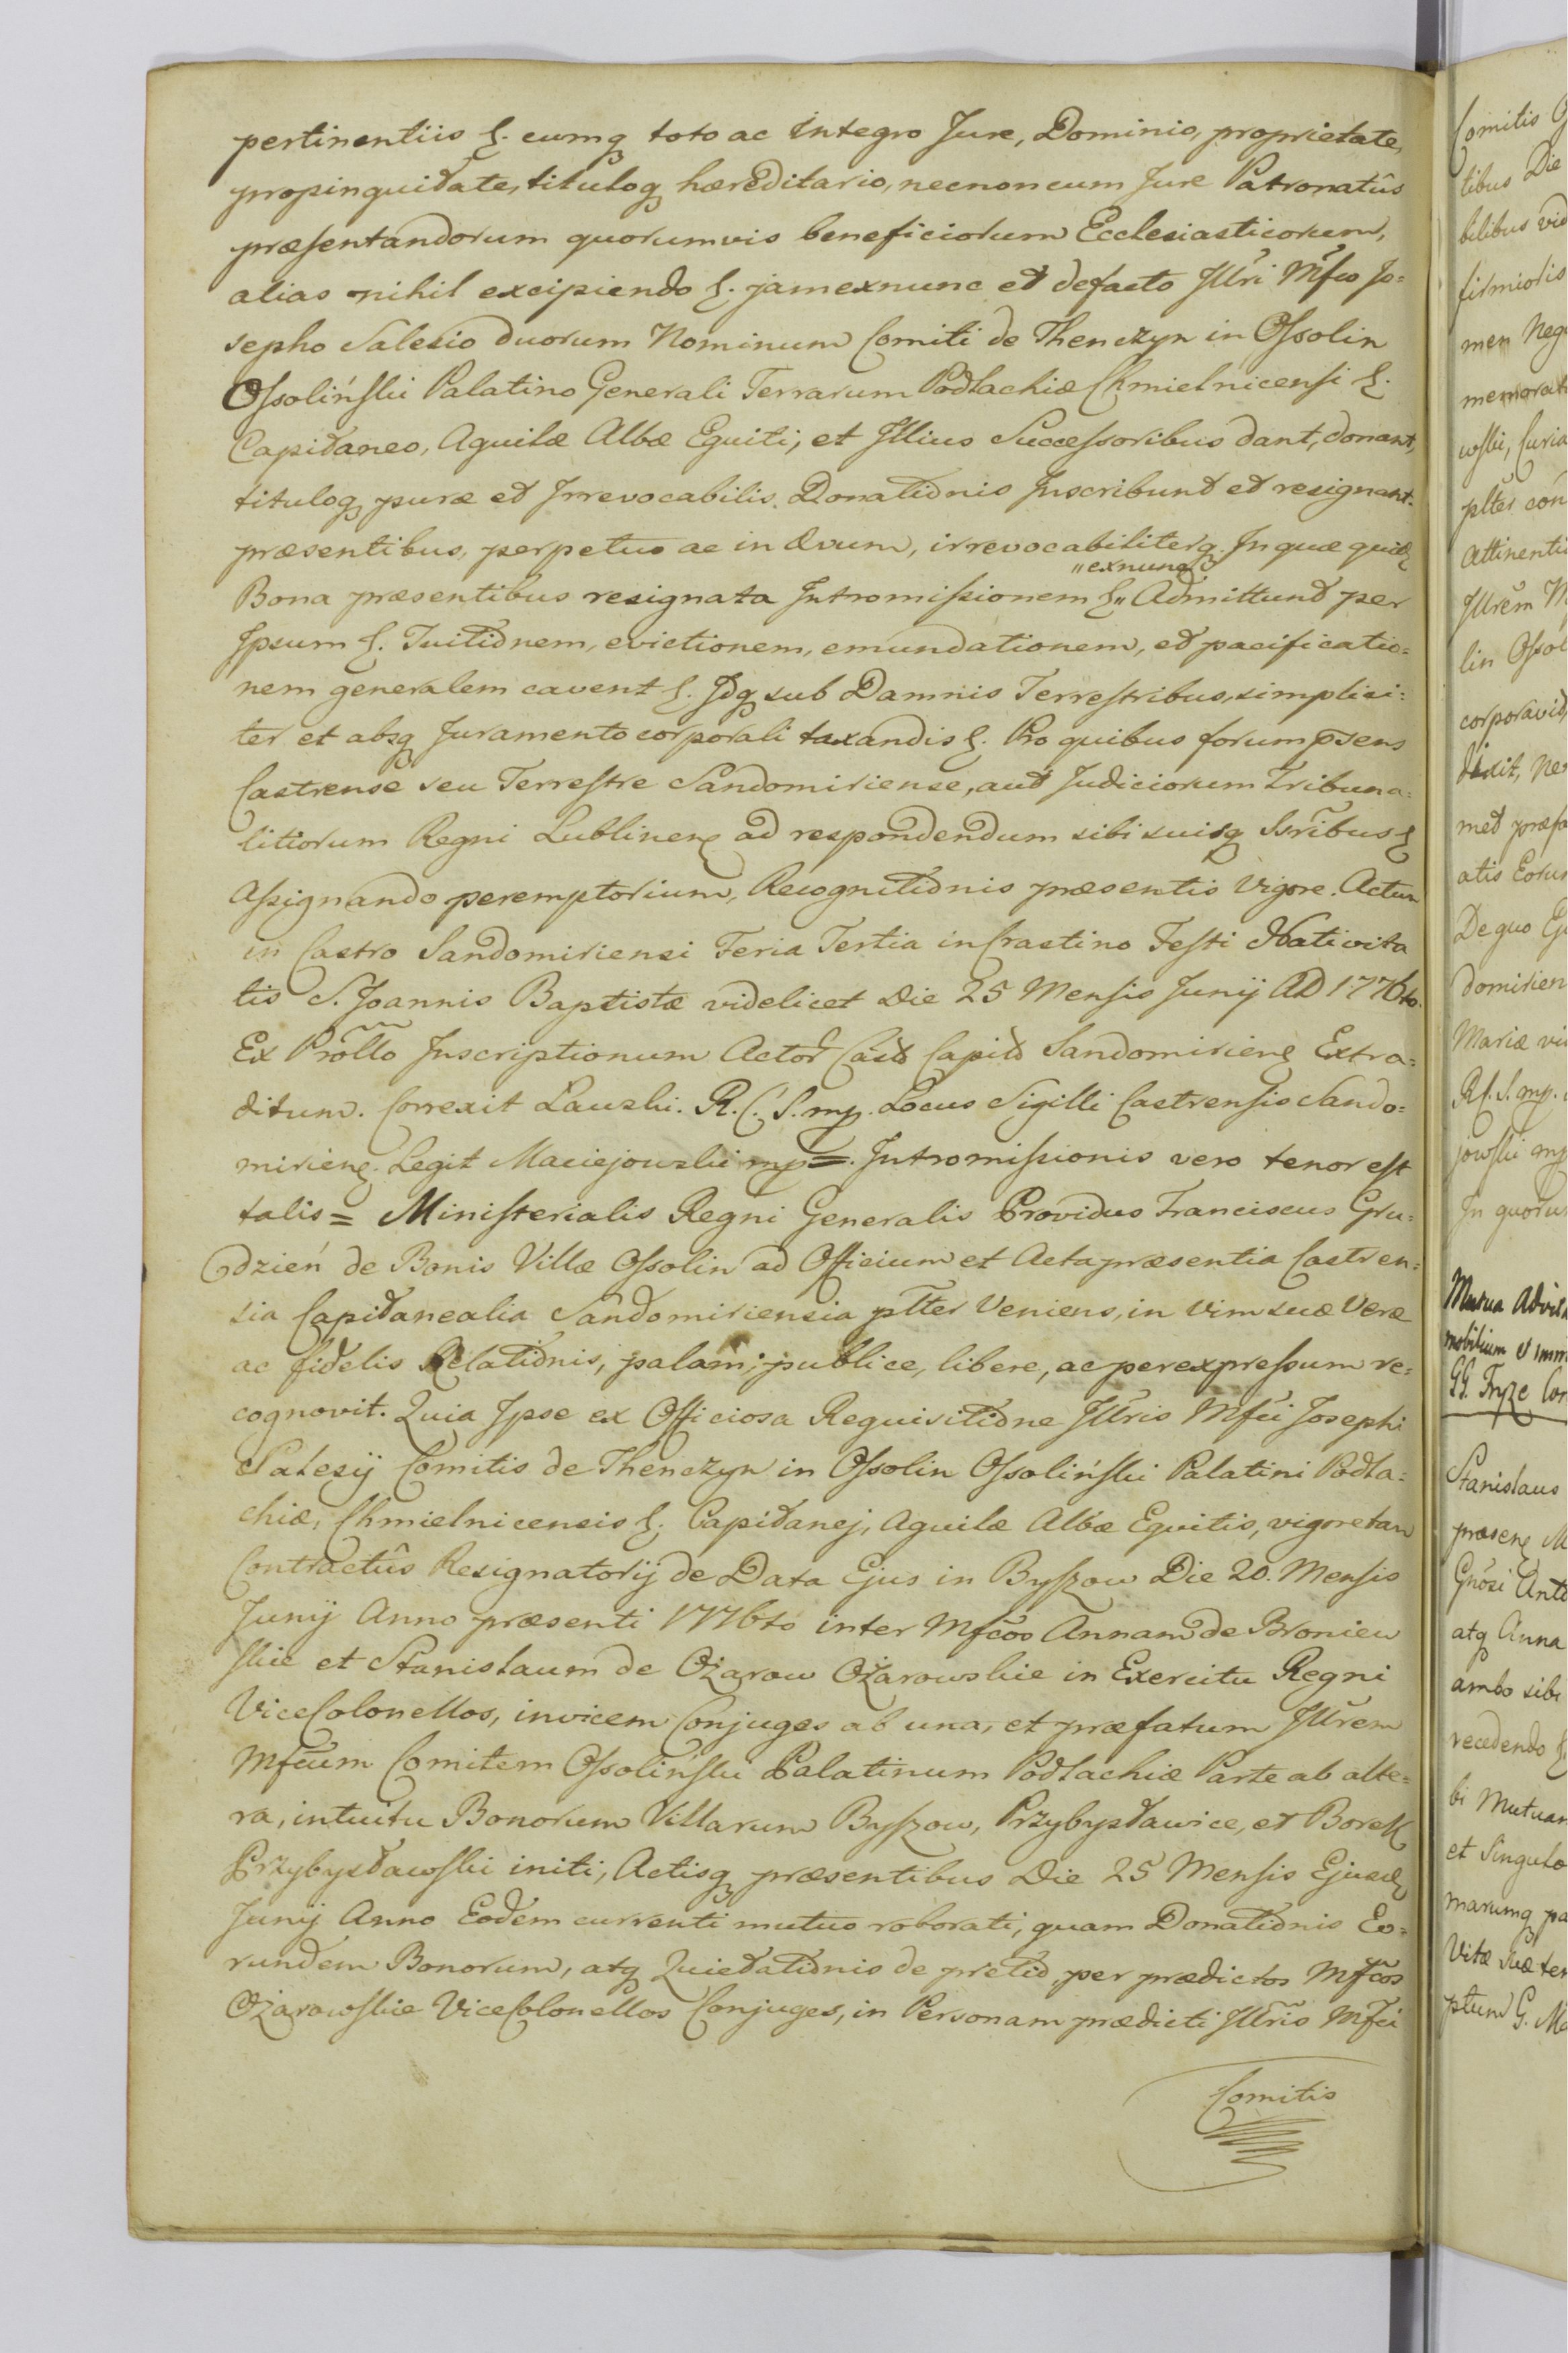 pertinentiis &. cumq toto ac integro Jure, Dominio, proprietate,
propinquitate, tituloq hæreditario, necnon cum Jure Patronatûs
præsentandorum quorumvis beneficiorum Ecclesiasticorum,
alias nihil excipiendo &. jam exnunc et defacto Jllri Mfco Jo=
sepho Salesio duorum Nominum Comiti de Thenczyn in Ossolin
Ossoliński Palatino Generali Terrarum Podlachiæ Chmielnicensi &.
Capitaneo, Aquilæ Albæ Equiti, et Jllius Successoribus dant, donant,
tituloq puræ et Jrrevocabilis Donationis Jnscribunt et resignant.
præsentibus, perpetuo ac in ævum, irrevocabiliterq. Jn quæ quid
"exnunc
Bona præsentibus resignata Jntromissionem &" Admittunt per
Jpsum &. Tuitionem, evictionem, emundationem, et pacificatio=
nem generalem cavent &. Jdq sub Damnis Terrestribus, simplici=
ter et absq Juramento corporali taxandis &. Pro quibus forum p̄sens
Castrense seu Terrestre Sandomiriense, aut Judiciorum Tribuna=
litiorum Regni Lublinen ad respondendum sibi suisq Ssribus &
Assignando peremptorium, Recognitionis præsentis Vigore. Actum
in Castro Sandomiriensi Feria Tertia in Crastino Festi Nativita
tis S. Joannis Baptistæ videlicet Die 25 Mensis Junij AD 1776to.
Ex Prothllo Jnscriptionum Actor Cast Capit Sandomirien Extra=
ditum. Correxit Lauski. R. C. S. mp. Locus Sigilli Castrensis Sando=
mirien. Legit Maciejowski mp =. Jntromissionis vero tenor est
talis = Ministerialis Regni Generalis Providus Franciscus Gru=
dzień de Bonis Villæ Ossolin ad Officium et Acta præsentia Castren=
sia Capitanealia Sandomiriensia plter Veniens, in Vim suæ Veræ
ac fidelis Relationis, palam, publice, libere, ac per expressum re=
cognovit. Quia Jpse ex Officiosa Requisitione Jllris Mfci Josephi
Salesij Comitis de Thenczyn in Ossolin Ossoliński Palatini Podla=
chiæ, Chmielnicensis &. Capitanej, Aquilæ Albæ Equitis, vigore tam
Contractûs Resignatorij de Data Ejus in Byszow Die 20. Mensis
Junij Anno præsenti 1776to inter Mfcos Annam de Broniew
skie et Stanislaum de Ożarow Ożarowskie in Exercitu Regni
ViceColonellos, invicem Conjuges ab una, et præfatum Jllrem
Mfcum Comitem Ossoliński Palatinum Podlachiæ Parte ab alte=
ra, intuitu Bonorum Villarum Byszow, Przybysławice, et Borek
Przybysławski initi, Actisq præsentibus Die 25 Mensis Ejusd
Junij Anno Eodem currenti mutuo roborati, quam Donationis Eo=
rundem Bonorum, atq Quietationis de pretio, per prædictos Mfcos
Ożarowskie ViceColonellos Conjuges, in Personam prædicti Jllris Mfci
Comitis

Comitis
tibus Die
bilibus
firmioris
men
attinenti
Jllrem
lin
corporavit
De quo
domirien
Mariæ
R C. S. mp.
jowski mp
Jn quorum
Mutua
mobilium
Stanislaus
præsen
atq Anna
ambo sibi
recedendo
bi Mutuam
et Singulo
marumq
Vitæ suæ